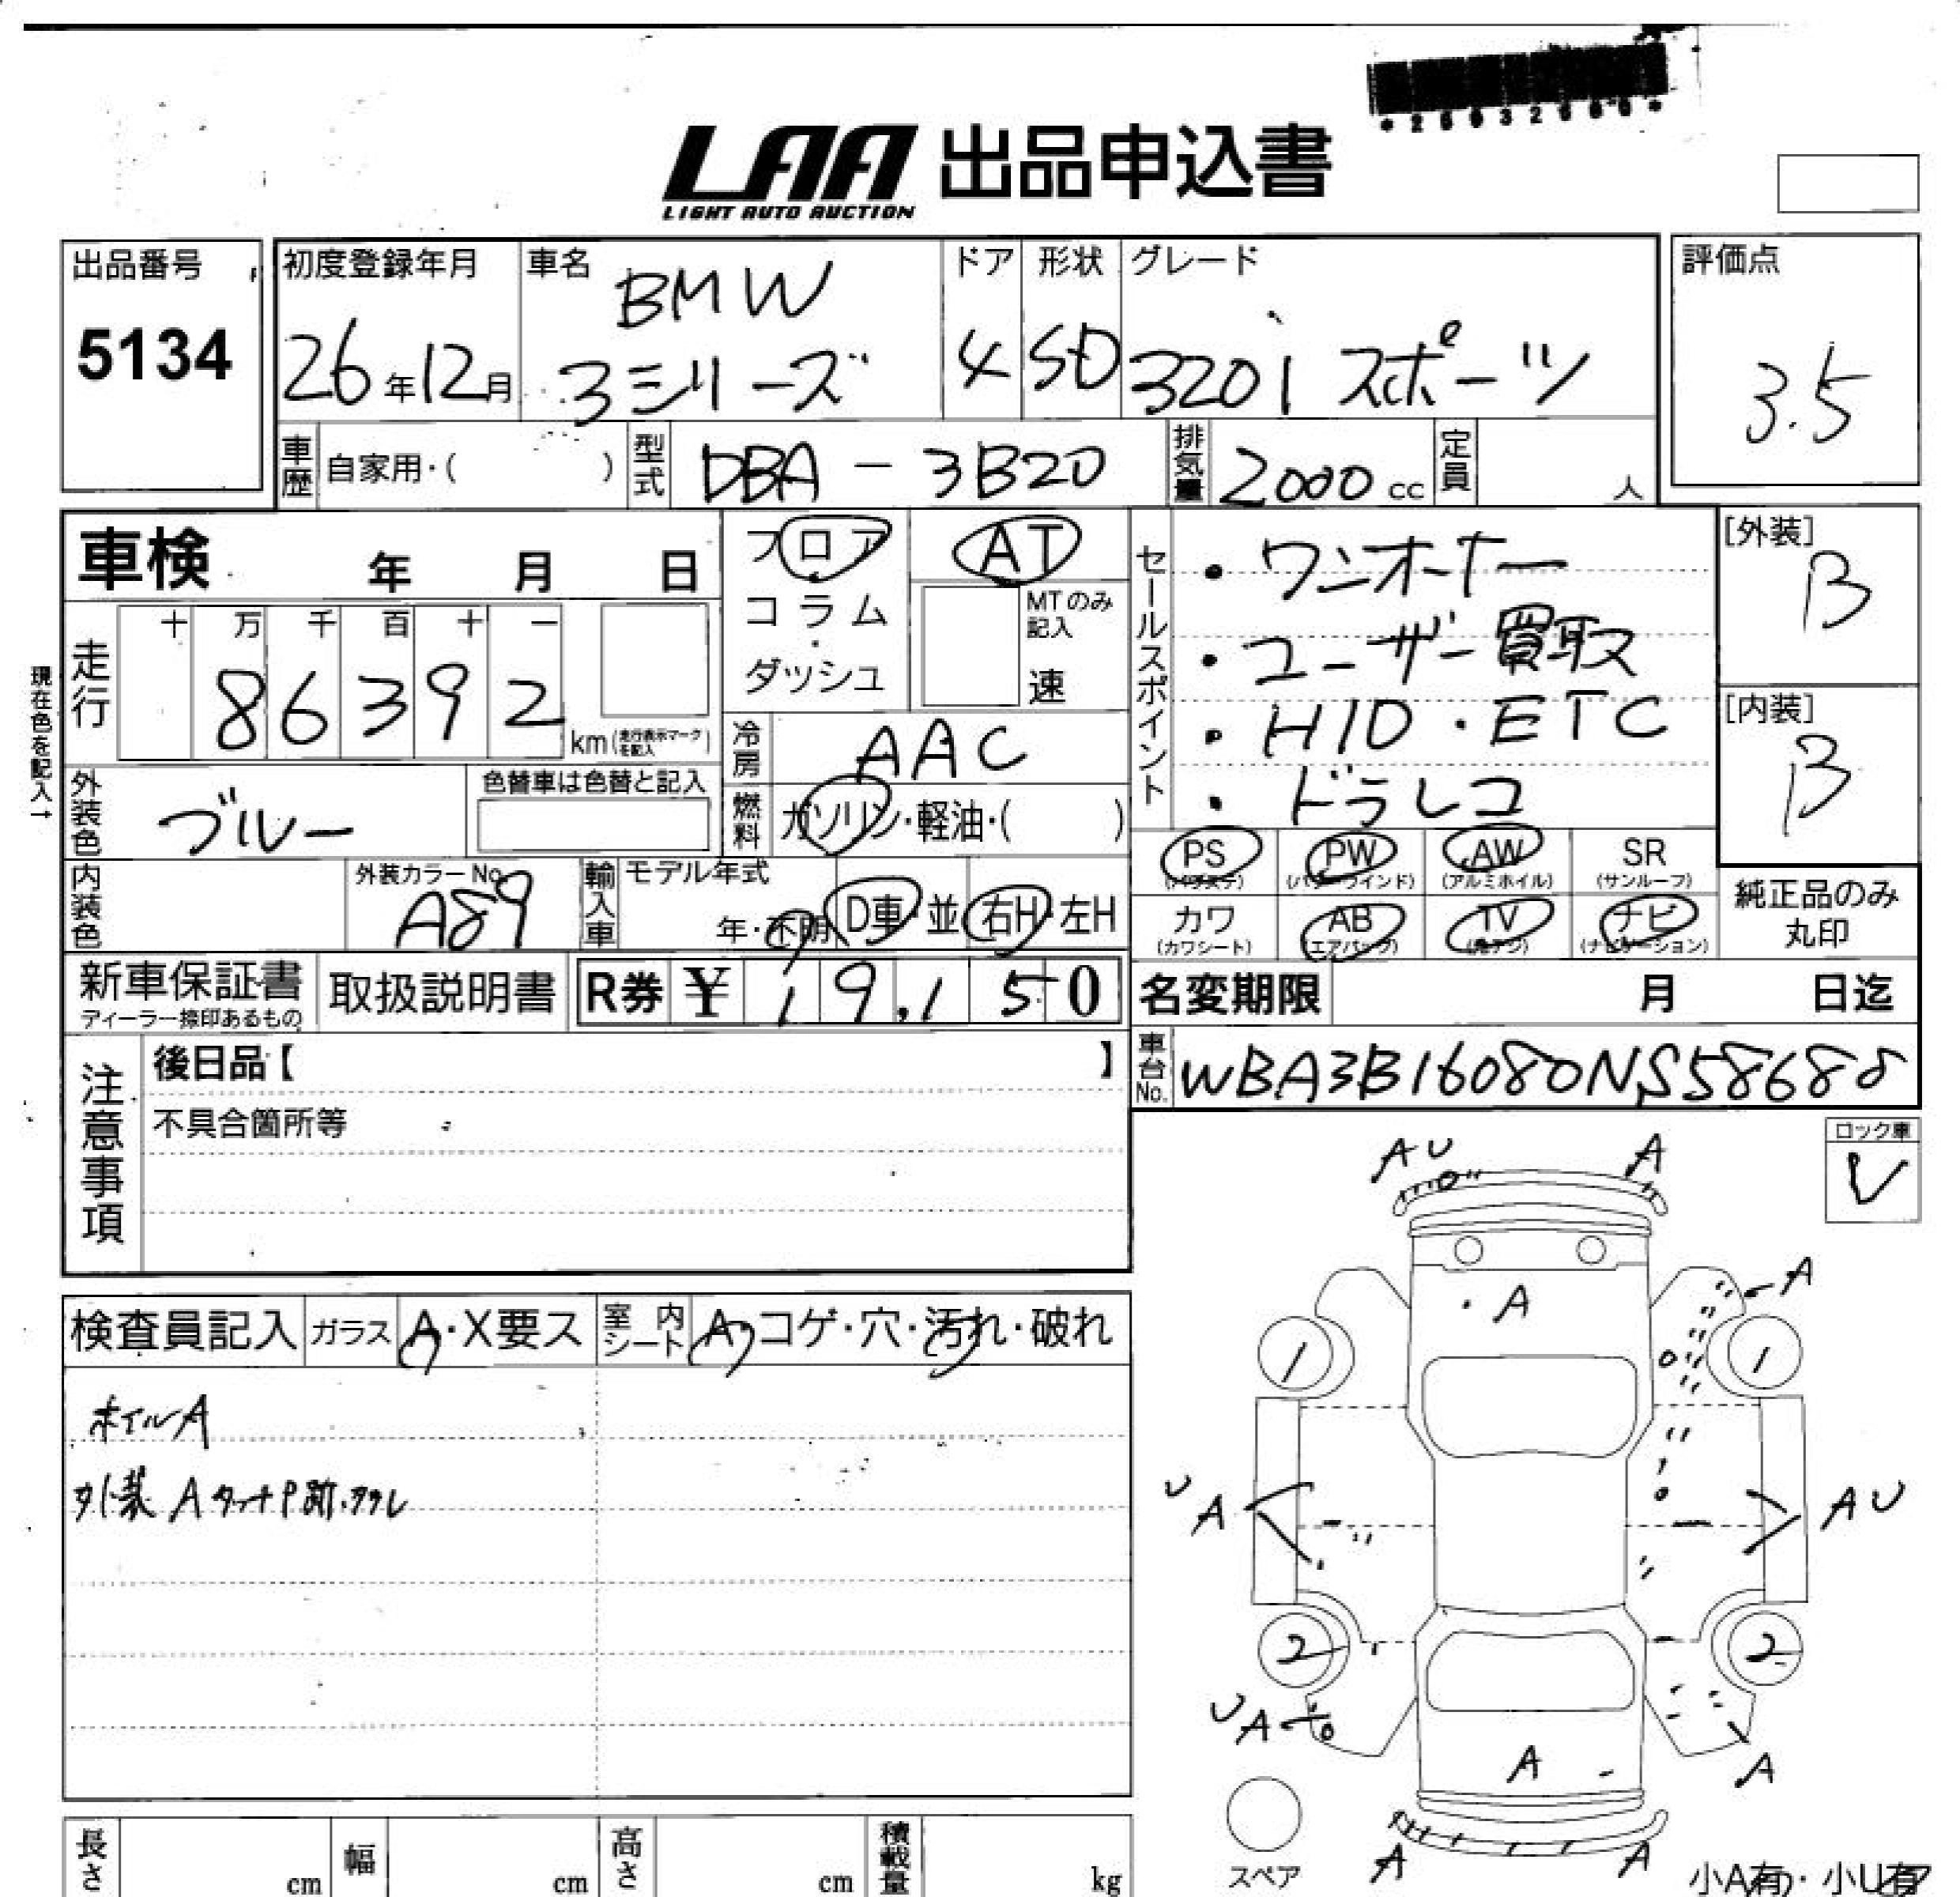 LAA 出品申込書
LIGHT AUTO AUCTION
出品番号
5134
初度登録年月
26年12月
車名
BMW
3シリーズ
ドア
4
形状
SD
グレード
320i スポーツ
評価点
3.5
車歴
自家用・( )
型式
DBA-3B20
排気量
2000cc
定員
人
車検 年 月 日
フロア・コラム・ダッシュ
AT
MTのみ記入
速
走行
十 万 千 百 十 一
8 6 3 9 2
km(走行表示マークを記入)
現在色を記入→
外装色
ブルー
色替車は色替と記入
冷房
AAC
燃料
ガソリン・軽油・( )
内装色
外装カラーNo.
A89
輸入車
モデル年式
年・不明
D車・並
右H・左H
セールスポイント
・ワンオーナー
・ユーザー買取
・HID・ETC
・ドラレコ
[外装]
B
[内装]
B
PS
(パワステ)
PW
(パワーウインド)
AW
(アルミホイル)
SR
(サンルーフ)
カワ
(カワシート)
AB
(エアバック)
TV
(地デジ)
ナビ
(ナビゲーション)
純正品のみ
丸印
新車保証書
ディーラー捺印あるもの
取扱説明書
R券 ¥ 19,150
名変期限 月 日迄
車台No.
WBA3B16080NS58688
注意事項
後日品【 】
不具合箇所等
ロック車
V
検査員記入
ガラス A・X要ス
室内シート A・コゲ・穴・汚れ・破れ
ホイルA
外装 AタッチP跡・タラレ
AU
A
A
A
1
1
UA
AU
2
2
UA
A
A
A
A
スペア
小A有・小U有
長さ cm
幅 cm
高さ cm
積載量 kg